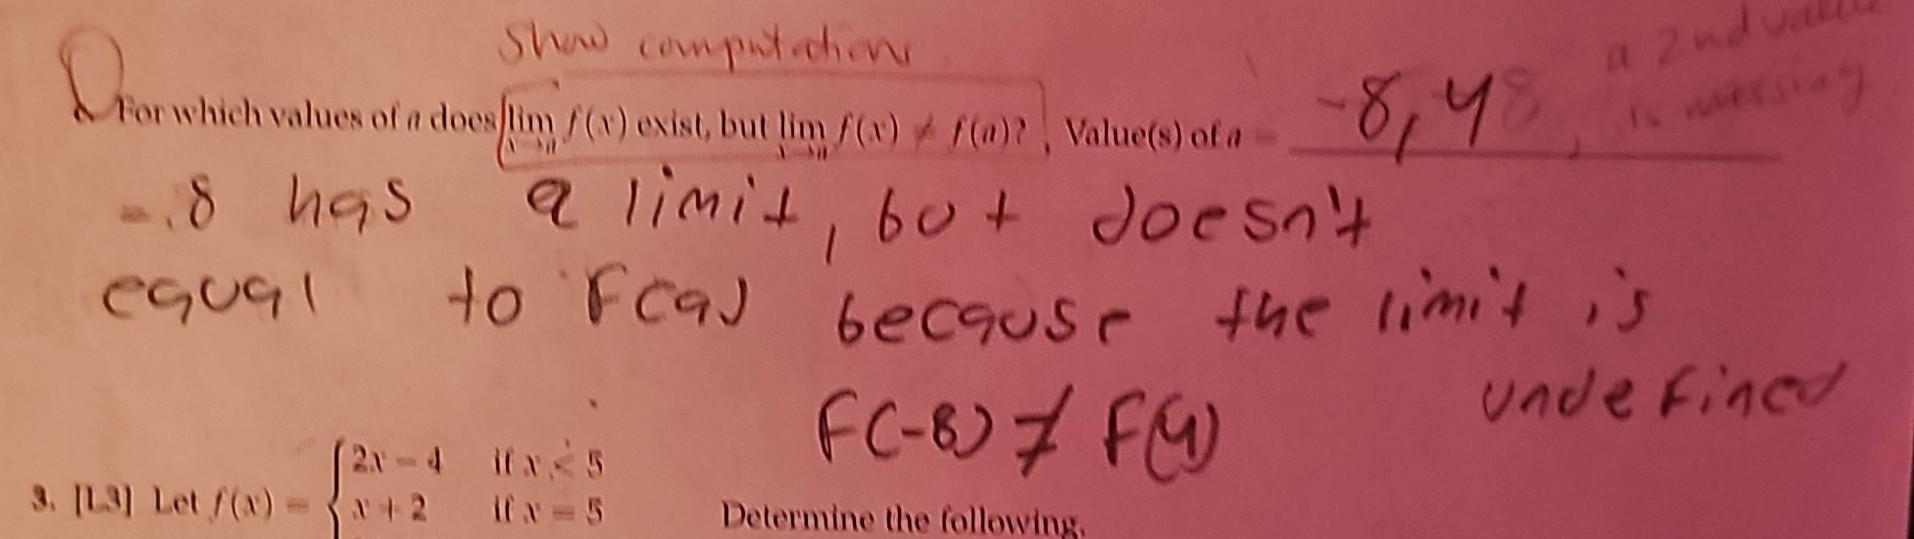 Show computations
a 2nd value
is missing
For which values of a does lim x→a f(x) exist, but lim x→a f(x) ≠ f(a)? Value(s) of a = -8, 4
-8 has a limit, but doesn't
equal to F(a) because the limit is
undefined
F(-8) ≠ F(4)
3. [L3] Let f(x) = { 2x - 4 if x < 5
x + 2 if x = 5
Determine the following.